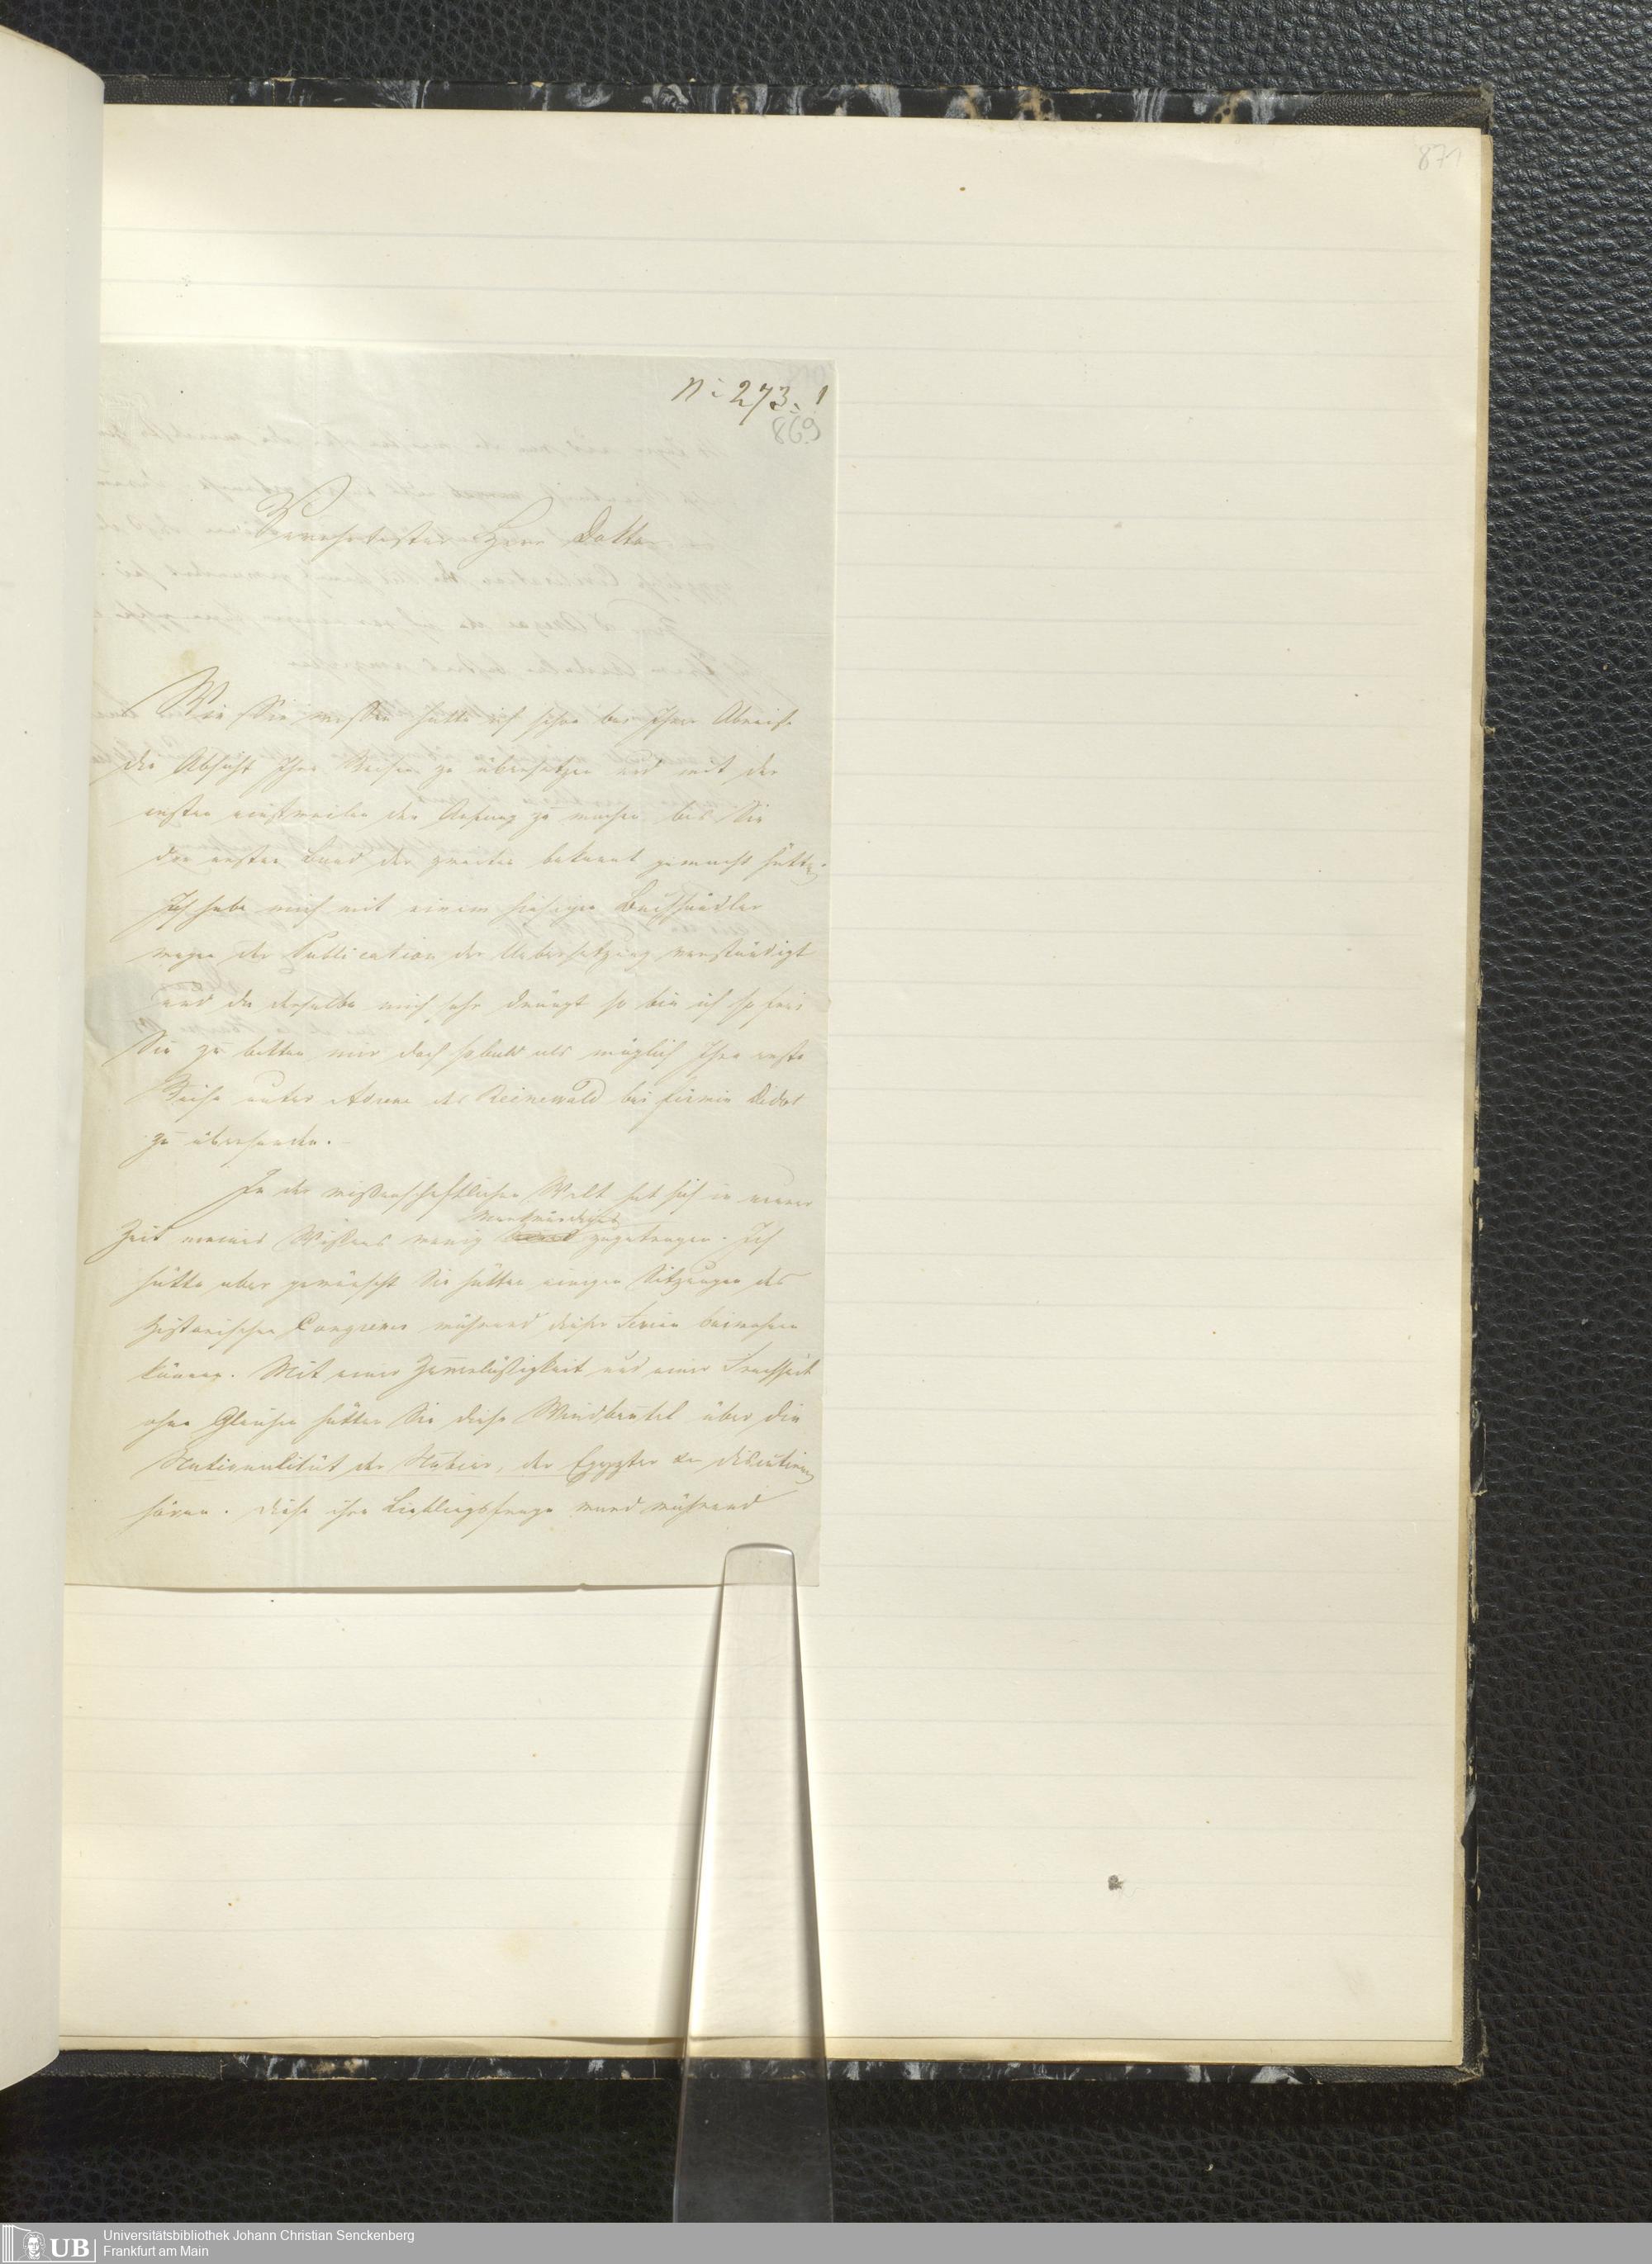 871
N: 273. 1
869
Verehrtester Herr Doktor
Wie Sie wissen hatte ich schon bei Ihrer Abreise
die Absicht Ihre Reisen zu übersetzen und mit der
ersten einstweilen den Anfang zu machen bis Sie
den ersten Band der zweiten bekannt gemacht hätten.
Ich habe mich mit einem hiesigen Buchhändler
wegen der Publication der Uebersetzung verständigt
und da derselbe mich sehr drängt so bin ich so frei
Sie zu bitten mir doch sobald als möglich Ihre erste
Reise unter Adresse des Reinewald bei Firmin Didot
zu übersenden.
In der wißenschaftlichen Welt hat sich in neuerer
Merkwürdiges
Zeit meines Wißens wenig zugetragen. Ich
hätte aber gewünscht Sie hätten einigen Sitzungen des
historischen Congresses während dieser beiwohnen
können. Mit einer und einer Frechheit
ohne Gleichen hätten Sie diese Windbeutel über die
Nationalität der Nubier, der Egypter discutiren
hören. Diese ihre Lieblingsfrage ward während
Universitätsbibliothek Johann Christian Senckenberg
UB
Frankfurt am Main